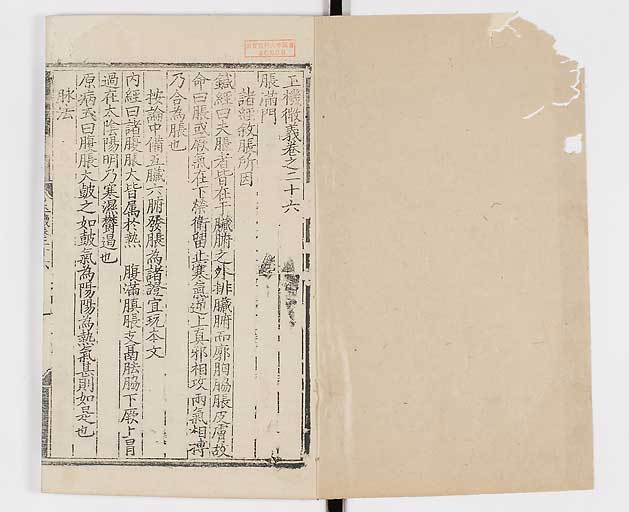 玉機微義卷之二十六
脹滿門
諸經敘脹所因
鍼經曰夫脹者皆在于臟腑之外排臟腑而郭胸脇脹皮膚故
命曰脹或厥氣在下營衛留止寒氣逆上真邪相攻兩氣相搏
乃合為脹也
按論中備五臟六腑發脹為諸證宜玩本文
內經曰諸腹脹大皆屬於熱 腹滿䐜脹支鬲胠脇下厥上冒
過在太陰陽明乃寒濕鬱遏也
原病式曰腹脹大皷之如皷氣為陽陽為熱氣甚則如是也
脉法